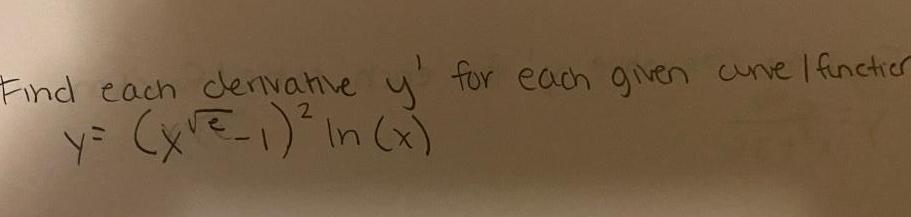 Find each derivative y' for each given curve / function
y = (x^√e - 1)² ln (x)